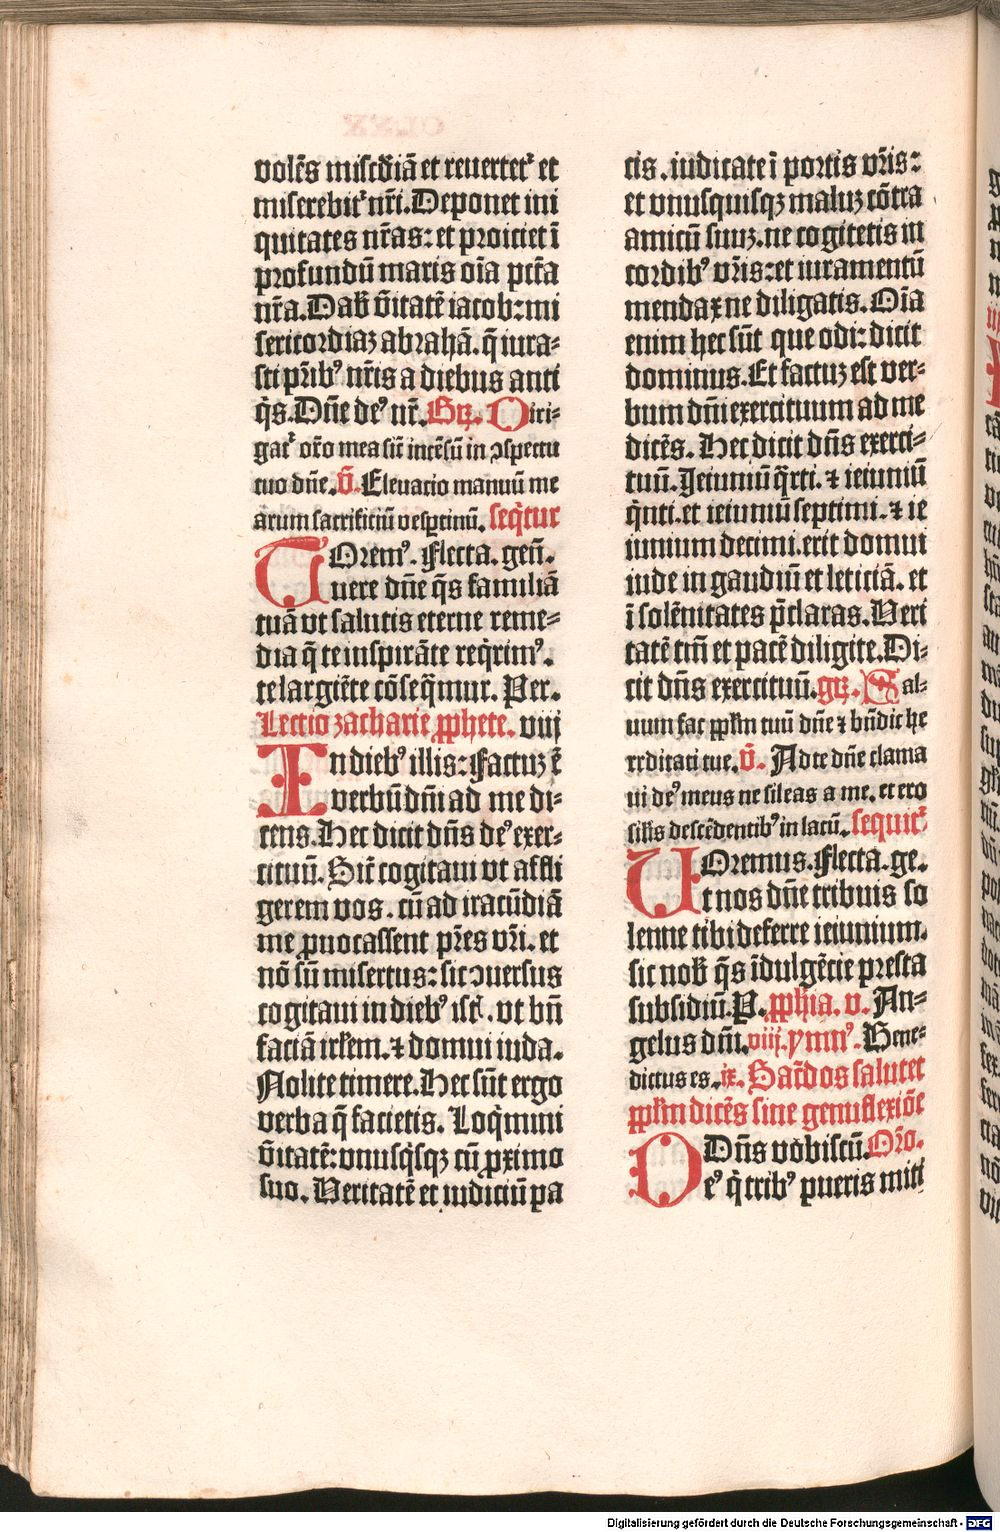 volēs misc̄diā et reuertet᷑ et
miserebit᷑ nr̄i. Deponet ini
quitates nr̄as: et proiciet ī
profundū maris oīa pctā
nr̄a. Dab̄ v̄itatē iacob: mi
sericordiaz abrahā. q̄ iura-
sti pr̄ibꝰ nr̄is a diebus anti
q̄s. Dn̄e deꝰ nr̄. Gꝝ. Diri-
gat᷑ or̄o mea sic̄ incēsū in ↄspectu
tuo dn̄e. v̄. Eleuatio manuū me
arum sacrificiū vesptinū. seq̄tur
Oremꝰ. Flecta. gen̄.
Tuere dn̄e q̄s familiā
tuā vt salutis eterne reme-
dia q̄ te inspirāte req̄rimꝰ.
te largiēte cōseq̄mur. Per.
Lectio zacharie ꝓphete. viij
In diebꝰ illis: Factuz ē
verbū dn̄i ad me di-
cens. Hec dicit dn̄s deꝰ exer-
cituū. Sic̄ cogitaui vt affli
gerem vos. cū ad iracūdiā
me ꝓuocassent pr̄es vr̄i. et
nō sū misertus: sic ↄuersus
cogitaui in diebꝰ ist̄. vt bn̄
faciā irl̄em. ⁊ domui iuda.
Nolite timere. Hec sūt ergo
verba q̄ facietis. Loq̄mini
v̄itatē: vnusq̄sqꝫ cū ꝓximo
suo. Veritatē et iudiciū pa
cis. iudicate ī portis vr̄is:
et vnusquisqꝫ maluz cōtra
amicū suuz. ne cogitetis in
cordibꝰ vr̄is: et iuramentū
mendax ne diligatis. Oīa
enim hec sūt que odi: dicit
dominus. Et factuz est ver-
bum dn̄i exercituum ad me
dicēs. Hec dicit dn̄s exerci-
tuū. Jeiuniū q̄rti. ⁊ ieiuniū
q̄nti. et ieiuniū septimi. ⁊ ie
iunium decimi. erit domui
iude in gaudiū et leticiā. et
ī solēnitates p̄claras. Veri
tatē tm̄ et pacē diligite. Di-
cit dn̄s exercituū. gꝝ. Sal-
uum fac ppl̄m tuū dn̄e ⁊ bn̄dic he
reditati tue. v̄. Ad te dn̄e clama
ui deꝰ meus ne sileas a me. et ero
sil̄is descēdentibꝰ in lacū. sequit᷑
Oremus. Flecta. ge.
Ut nos dn̄e tribuis so
lenne tibi deferre ieiunium.
sic nob̄ q̄s īdulgētie presta
subsidiū. P. ꝓph̄ia. v. An-
gelus dn̄i. viij. ymnꝰ. Bene-
dictus es. ix. Sac̄dos salutet
ppl̄m dicēs sine genuflexiōe
Dn̄s vobiscū. Or̄o.
Deꝰ q̄ tribꝰ pueris miti